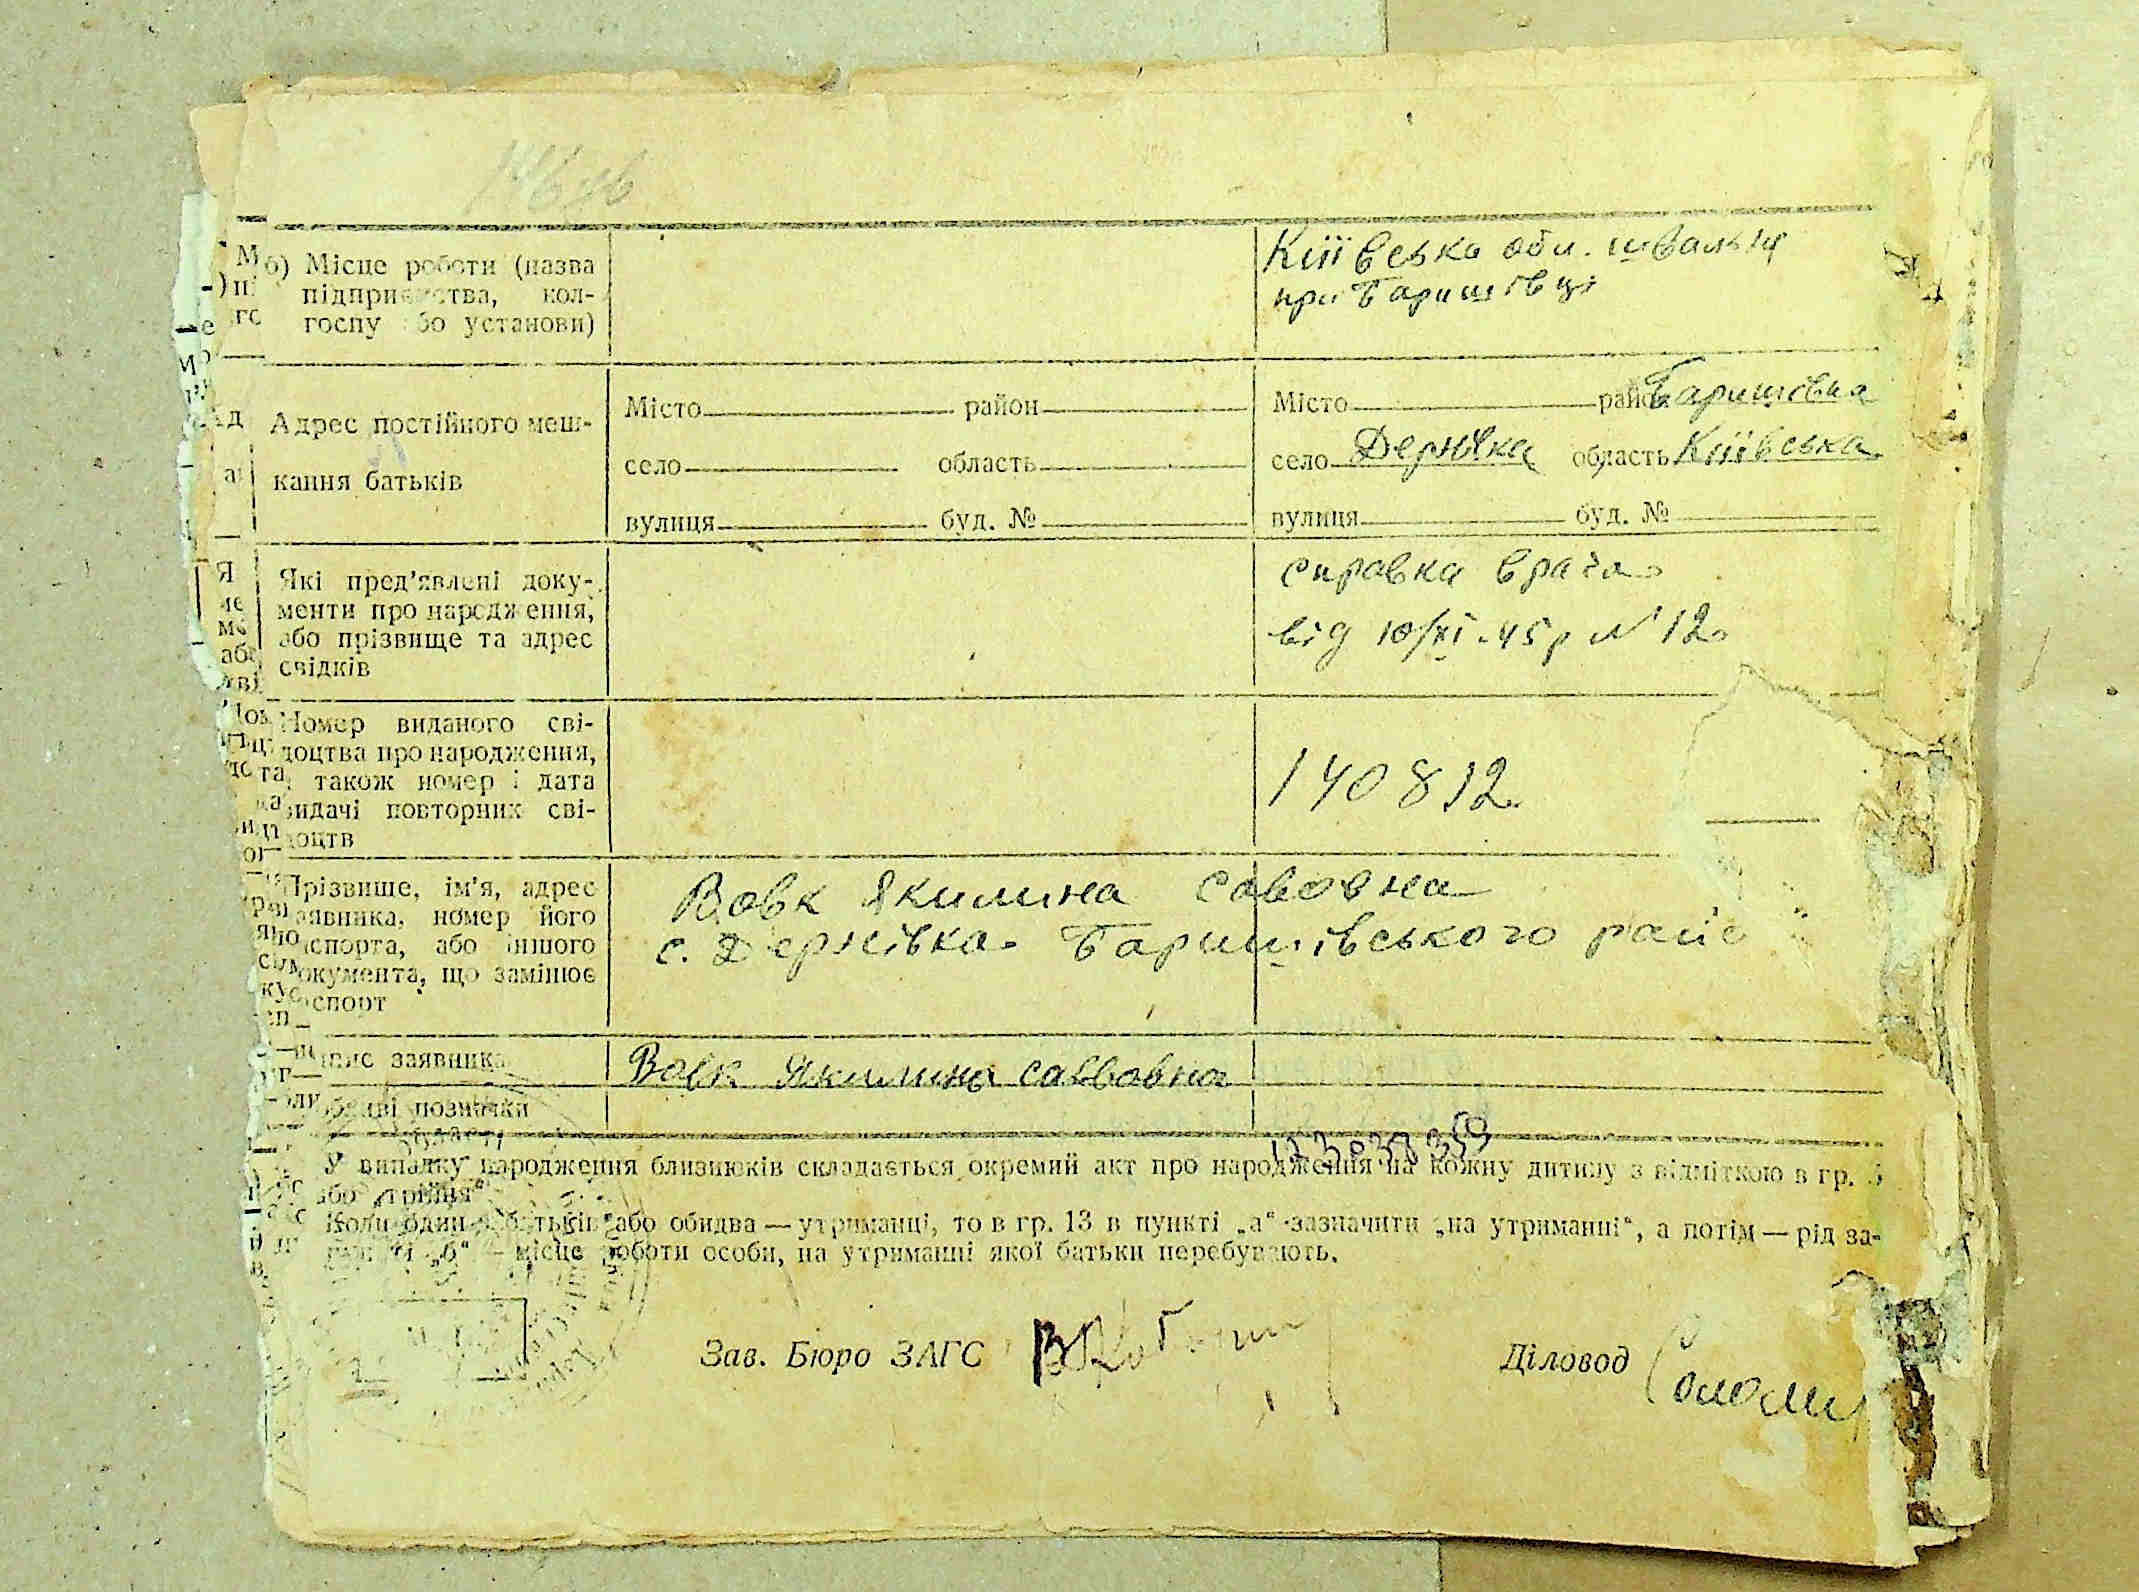 б) Місце роботи (назва
підприємства, кол-
госпу або установи)
Київська обл. швальня
при Баришівці
Адрес постійного меш-
кання батьків
Місто район
село область
вулиця буд. №
Місто район Баришівка
село Дернівка область Київська
вулиця буд. №
Які пред'явлені доку-
менти про народження,
або прізвище та адрес
свідків
справка врача
від 10/XI-45р N 12
Номер виданого сві-
доцтва про народження,
а також номер і дата
видачі повторних сві-
доцтв
140812
Прізвище, ім'я, адрес
заявника, номер його
паспорта, або іншого
документа, що замінює
паспорт
Вовк Якилина Савовна
с. Дернівка Баришівського райо
Підпис заявника
Вовк Якилина Саввовна
Особливі позначки
У випадку народження близнюків складається окремий акт про народження на кожну дитину з відміткою в гр.
або „трійня“
Коли один з батьків або обидва — утриманці, то в гр. 13 в пункті „а“ зазначити „на утриманні“, а потім — рід за-
пункті „б“ — місце роботи особи, на утриманні якої батьки перебувають.
Зав. Бюро ЗАГС
Діловод